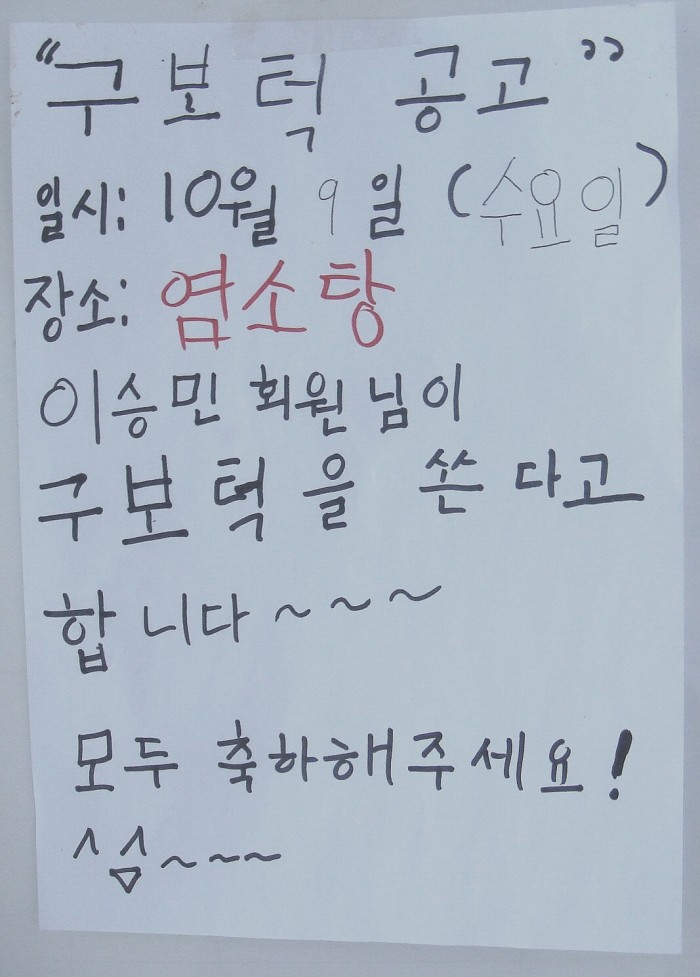 “구보턱 공고”
일시: 10월 9일 (수요일)
장소: 염소탕
이승민 회원님이
구보턱을 쏜다고
합니다~~~
모두 축하해주세요!
^^~~~